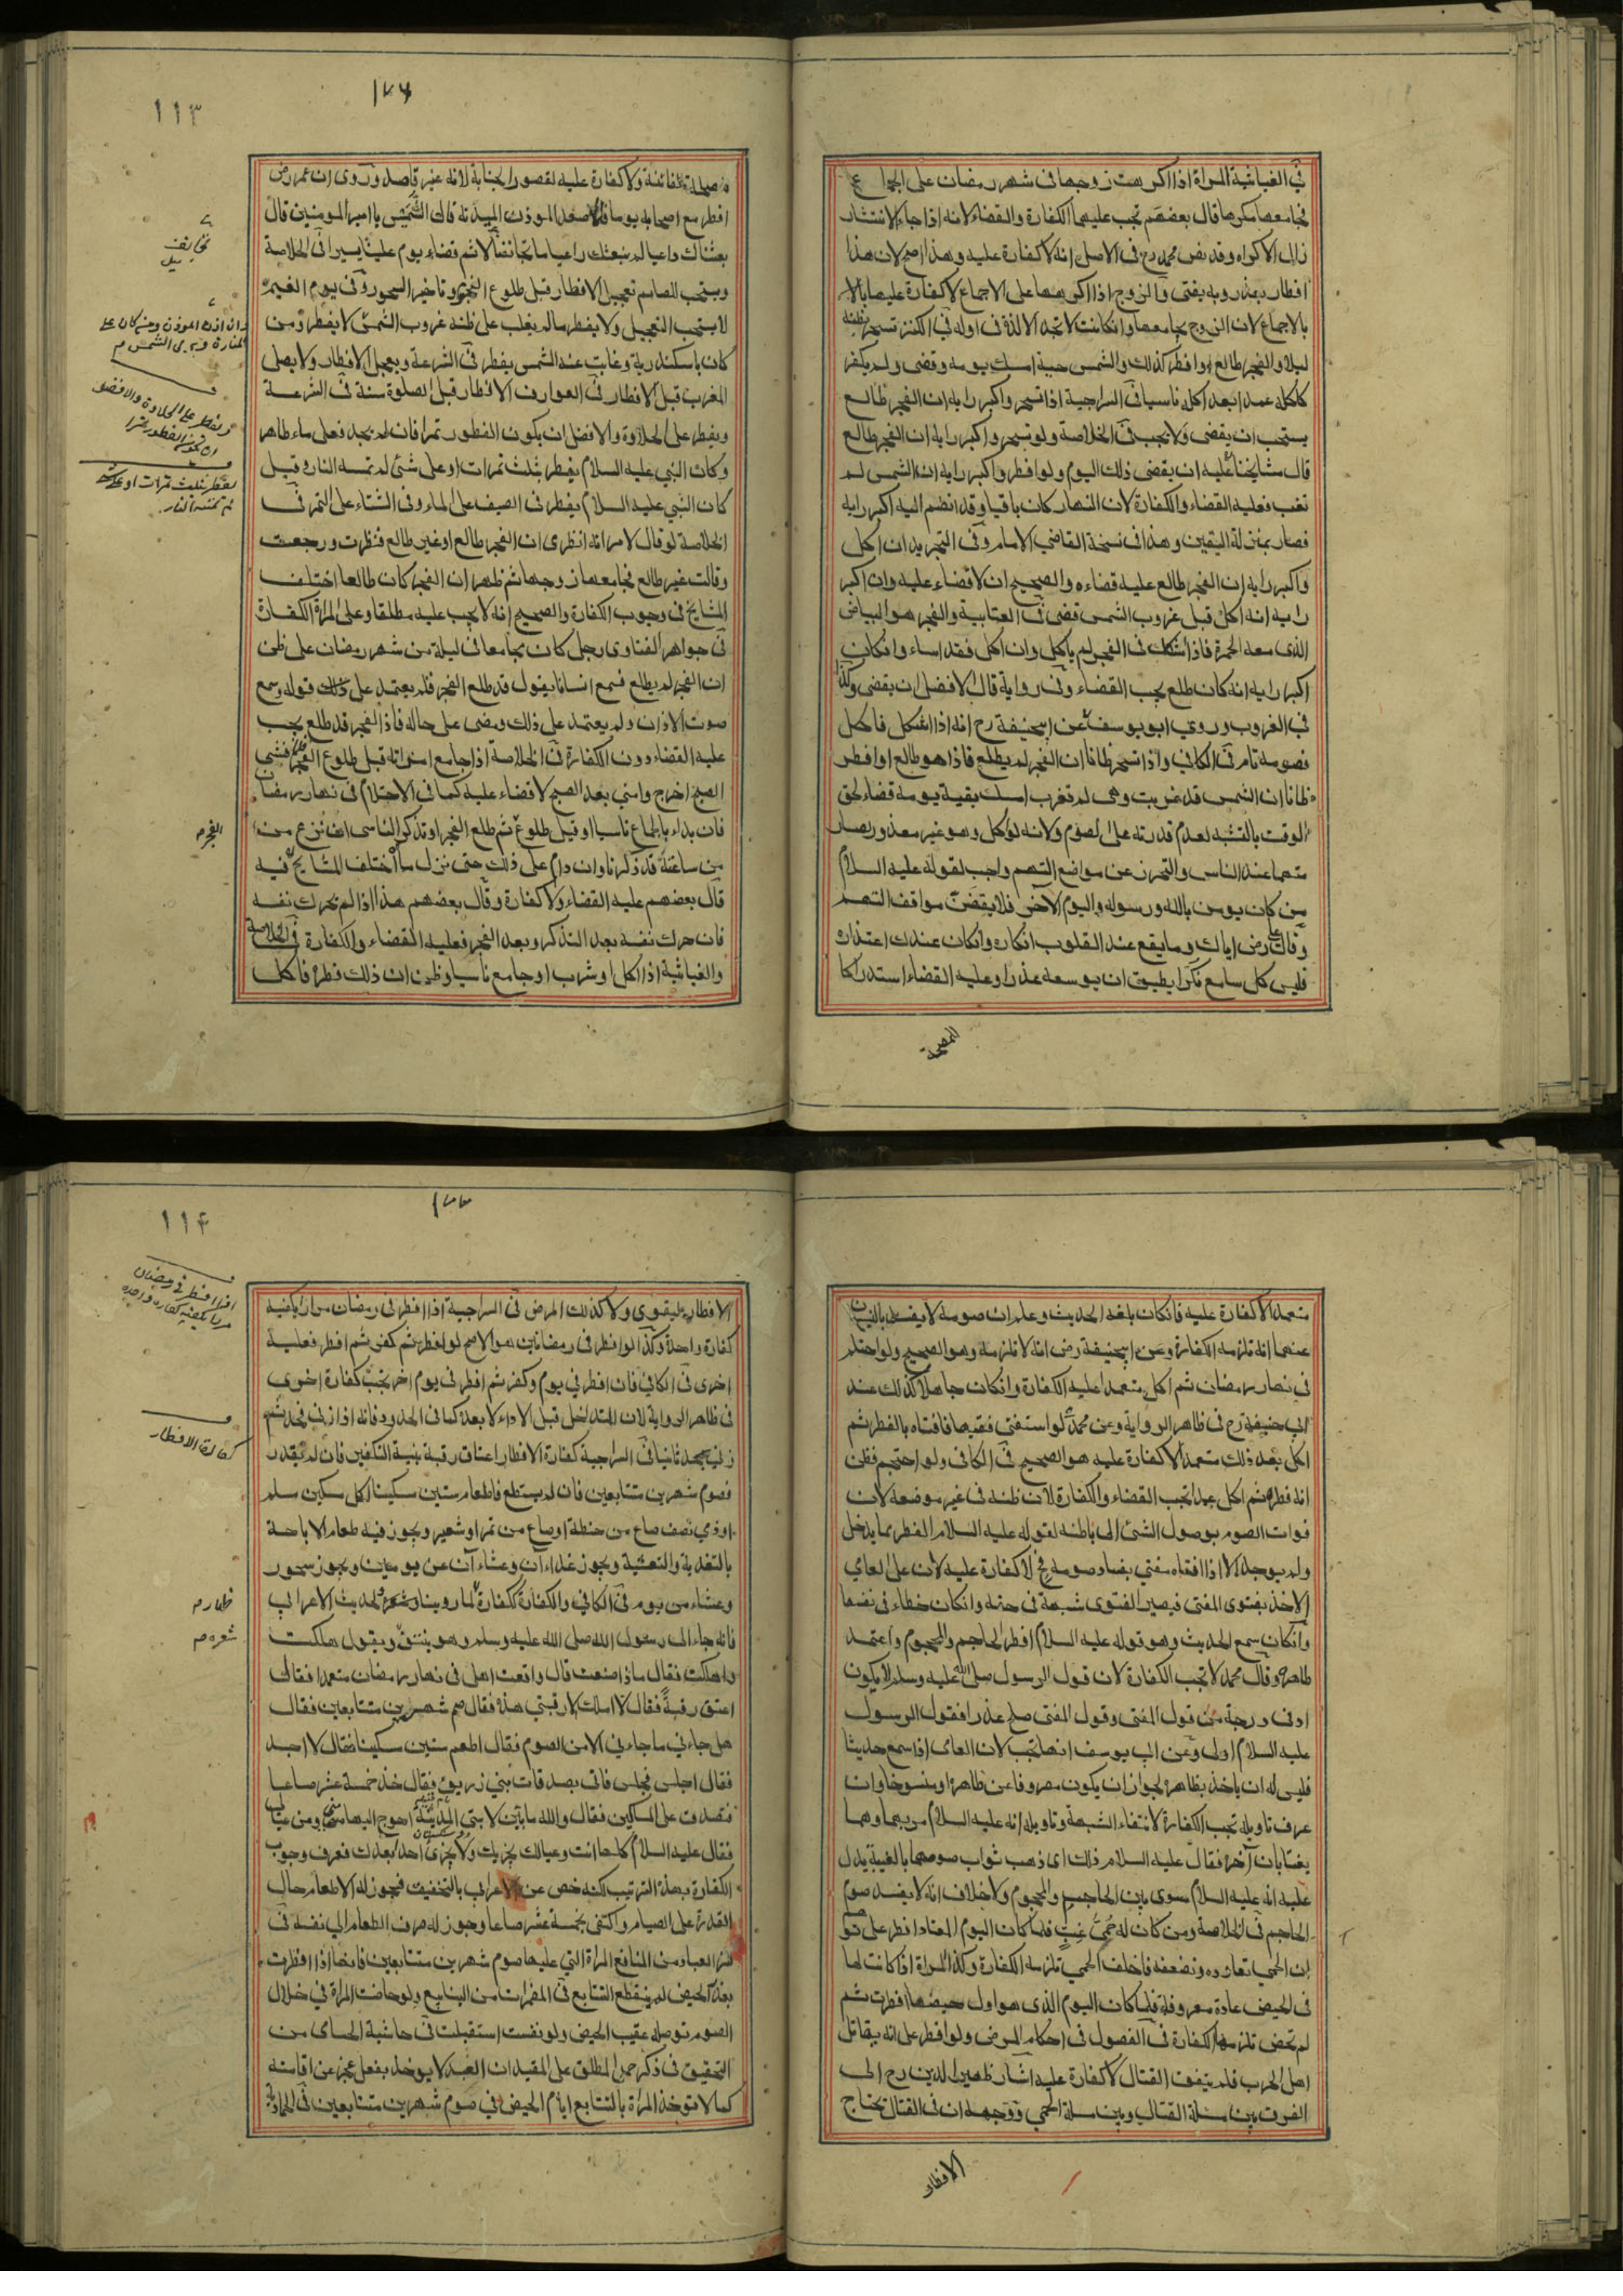 في الغياثية المراة اذا اكرهت زوجها في شهر رمضان على الجماع
فجامعها مكرها قال بعضهم تجب عليهما الكفارة والقضاء لانه اذا جاء الانتشار
زال الاكراه وقد نص محمد رح في الاصل انه لا كفارة عليه وهذا اصح لان هذا
افطار بعذر وبه يفتى والزوج اذا اكرهها على الاجماع لا كفارة عليها
بالاجماع لان الزوج يجامعها وان كانت لا تجد الالذة في اوله في الكنز تسحر بظنه
ليلا والفجر طالع او افطر كذلك والشمس حية امسك يومه وقضى ولم يكفر
كاكله عمدا بعد اكله ناسيا في السراجية اذا تسحر واكبر رايه ان الفجر طالع
يستحب ان يقضي ولا يجب في الخلاصة ولو تسحر واكبر رايه ان الفجر طالع
قال مشايخنا عليه ان يقضي ذلك اليوم ولو افطر واكبر رايه ان الشمس لم
تغب فعليه القضاء والكفارة لان النهار كان باقيا وقد انظم اليه اكبر رايه
فصار بمنزلة اليقين وهذا في نسخة القاضي الامام وفي التجريد ان اكل
واكبر رايه ان الفجر طالع عليه قضاءه والصحيح ان لا قضاء عليه وان اكبر
رايه انه اكل قبل غروب الشمس قضى في العتابية والفجر هو البياض
الذي معه الحمرة فاذا شك في الفجر لم ياكل وان اكل فقد اساء وان كان
اكبر رايه انه كان طلع يجب القضاء وفي رواية قال الافضل ان يقضي وكذا
في الغروب وروى ابو يوسف عن ابيحنيفة رح انه اذا اشكل فاكل
فصومه تام في الكافي واذا تسحر ظانا ان الفجر لم يطلع فاذا هو طالع او افطر
ظانا ان الشمس قد غربت وهي لم تغرب امسك بقية يومه قضاء لحق
الوقت بالتشبه لعدم قدرته على الصوم ولانه لو اكل وهو غير معذور يصار
متهما عند الناس والتحرز عن مواضع التهم واجب لقوله عليه السلام
من كان يومن بالله ورسوله واليوم الاخر فلا يقفن مواقف التهم
وقال علي رض اياك وما يقع عند القلوب انكاره وان كان عندك اعتذاره
فليس كل سامع نكرا يطيق ان يوسعه عذرا وعليه القضاء استدراكا
١٧٦
١١٣
للمصلحة الفائتة ولا كفارة عليه لقصور الجناية لانه غير قاصد وروى ان عمر رض
افطر مع اصحابه يوما فلما صعد الموذن الميذنة قال الشمس يا امير المومنين قال
بعثناك داعيا لم نبعثك راعيا ما تجانفنا لاثم قضاء يوم علينا يسير في الخلاصة
ويستحب للصايم تعجيل الافطار قبل طلوع النجوم وتاخير السحور وفي يوم الغيم
لا يستحب التعجيل ولا يفطر مالم يغلب على ظنه غروب الشمس لا يفطر ومن
كان باسكندرية وغابت عنه الشمس يفطر في الشرعة ويعجل الافطار ولا يصلى
المغرب قبل الافطار في العوارف الافطار قبل الصلوة سنة في الشرعة
ويفطر على الحلاوة والافضل ان يكون الفطور تمرا فان لم يجد فعلى ماء طاهر
وكان النبي عليه السلام يفطر بثلث تمرات او على شئ لم تمسه النار وقيل
كان النبي عليه السلام يفطر في الصيف على الماء وفي الشتاء على التمر في
الخلاصة لو قال لامراته انظرى ان الفجر طالع او غير طالع فنظرت ورجعت
وقالت غير طالع فجامعها زوجها ثم ظهر ان الفجر كان طالعا اختلف
المشايخ في وجوب الكفارة والصحيح انه لا يجب عليه مطلقا وعلى المراة الكفارة
في جواهر الفتاوى رجل كان يجامع في ليلة من شهر رمضان على ظن
ان الفجر لم يطلع فسمع انسانا يقول قد طلع الفجر فلم يعتمد على ذلك قوله وسمع
صوت الاذان ولم يعتمد على ذلك ومضى على حاله فاذا الفجر قد طلع يجب
عليه القضاء دون الكفارة في الخلاصة اذا جامع امراته قبل طلوع الفجر فخشي
الصبح اخرج وامني بعد الصبح لا قضاء عليه كما في الاحتلام في نهار رمضان
فان بداء بالجماع ناسيا او قبل طلوع ثم طلع الفجر او تذكر الناسى ان نزع من
من ساعته قد ذكرنا وان دام على ذلك حتى نزل ما اختلف المشايخ فيه
قال بعضهم عليه القضاء ولا كفارة وقال بعضهم هذا اذا لم يحرك نفسه
فان حرك نفسه بعد التذكر وبعد الفجر فعليه القضاء والكفارة في الخلاصة
والغياثية اذا اكل او شرب او جامع ناسيا وظن ان ذلك فطره فاكل
ان اذن الموذن ومن كان على
المنارة ويرى الشمس م
ويفطر على الحلاوة والافضل
ان يكون الفطور تمرا
يفطر بثلث تمرات او على شئ
لم تمسه النار
الفجر م
للمصلحة
متعمدا لا كفارة عليه فان كان بلغه الحديث وعلم ان صومه لا يفسد بالنسيان
عنهما انه تلزمه الكفارة وعن ابيحنيفة رض انه لا تلزمه وهو الصحيح ولو احتلم
في نهار رمضان ثم اكل متعمدا عليه الكفارة وان كان جاهلا كذلك عند
ابي حنيفة رح في ظاهر الرواية وعن محمد لو استفتى فقيها فافتاه بالفطر ثم
اكل بعد ذلك متعمدا لا كفارة عليه هو الصحيح في الكافي ولو احتجم فظن
انه فطره ثم اكل عمدا تجب القضاء والكفارة لان ظنه في غير موضعه لان
فوات الصوم بوصول الشئ الى باطنه لقوله عليه السلام الفطر مما يدخل
ولم يوجد الا اذا افتاه مفتي بفساد صومه فح لا كفارة عليه لان على العامي
الاخذ بفتوى المفتي فيصير الفتوى شبهة في حقه وان كان خطاء في نفسها
وان كان سمع الحديث وهو قوله عليه السلام افطر الحاجم والمحجوم واعتمد
ظاهره وقال محمد لا تجب الكفارة لان قول الرسول صلى الله عليه وسلم لا يكون
ادنى درجة من قول المفتي وقول المفتي صلح عذرا فقول الرسول
عليه السلام اولى وعن ابي يوسف انها تجب لان العامى اذا سمع حديثا
فليس له ان ياخذ بظاهره لجواز ان يكون مصروفا عن ظاهره او منسوخا وان
عرف تاويله تجب الكفارة لانتفاء الشبهة وتاويله انه عليه السلام مر بهما وهما
يغتابان آخر فقال عليه السلام ذلك اى ذهب ثواب صومهما بالغيبة يدل
عليه انه عليه السلام سوى بين الحاجم والمحجوم ولا خلاف انه لا يفسد صوم
الحاجم في الخلاصة ومن كان له حمى غب فلما كان اليوم المعتاد افطر على توهم
ان الحمى تعاوده وتضعفه فاخلف الحمى تلزمه الكفارة وكذا المراة اذا كانت لها
في الحيض عادة معروفة فلما كان اليوم الذي هو اول حيضها افطرت ثم
لم تحض تلزمها الكفارة في الفصول في احكام المرض ولو افطر على انه يقاتل
اهل الحرب فلم يتفق القتال لا كفارة عليه اشار ظهير الدين رح الى
الفرق بين مسلة القتال وبين مسلة الحمى ووجهه ان في القتال يحتاج
١٧٧
١١٤
الافطار ليتقوى ولا كذلك المرض في السراجية اذا افطر في رمضان مرارا يكفيه
كفارة واحدة وكذا لو افطر في رمضانين هو الاصح لو افطر ثم كفر ثم افطر فعليه
اخرى في الكافي فان افطر في يوم وكفر ثم افطر في يوم اخر تجب كفارة اخرى
في ظاهر الرواية لان المتداخل قبل الاداء لا بعد كما في الحدود فانه اذا زنى فحد ثم
زنى يحد ثانيا في السراجية كفارة الافطار اعتاق رقبة بنية التكفير فان لم يقدر
فصوم شهرين متتابعين فان لم يستطع فاطعام ستين مسكينا لكل مسكين مسلم
او ذمي نصف صاع من حنطة او صاع من تمر او شعير ويجوز فيه طعام الاباحة
بالتغدية والتعشية ويجوز غداءان وعشاءان عن يومين ويجوز سحور
وعشاء من يوم في الكافي والكفارة ككفارة لما روينا وشعره لحديث الاعرابي
فانه جاء الى رسول الله صلى الله عليه وسلم وهو ينتف ويقول هلكت
واهلكت فقال ماذا صنعت قال واقعت اهلى في نهار رمضان متعمدا فقال
اعتق رقبة فقال لا املك الا رقبتي هذه فقال صم شهرين متتابعين فقال
هل جاءني ما جاءني الا من الصوم فقال اطعم ستين مسكينا فقال لا اجد
فقال اجلس فجلس فاتى بصدقات بني زريق فقال خذ خمسة عشر صاعا
فتصدق على المساكين فقال والله ما بين لابتي المدينة احوج اليها مني ومن عيالي
فقال عليه السلام كلها انت وعيالك يجزيك ولا يجزى احدا بعدك فعرف وجوب
الكفارة بهذه الترتيب لكنه خص عن الاعرابي بالتخفيف فجوز له الاطعام حال
القدرة على الصيام واكتفى بخمسة عشر صاعا وجوز له صرف الطعام الى نفسه في
المراة التي عليها صوم شهرين متتابعين فانها اذا افطرت
بعذر الحيض لم ينقطع التتابع في المضمرات من الينابيع ولو حاضت المراة في خلال
الصوم توصله عقيب الحيض ولو نفست استقبلت في حاشية الحسامى من
التحقيق في ذكر حمل المطلق على المقيد ان العبد لا يوخذ بفعل عجز عن اقامته
كما لا توخذ المراة بالتتابع ايام الحيض في صوم شهرين متتابعين في الحمادية
اذا افطر في رمضان
مرارا يكفيه كفارة واحدة
كفارة الافطار
ظهار م
شعره م
الافطار